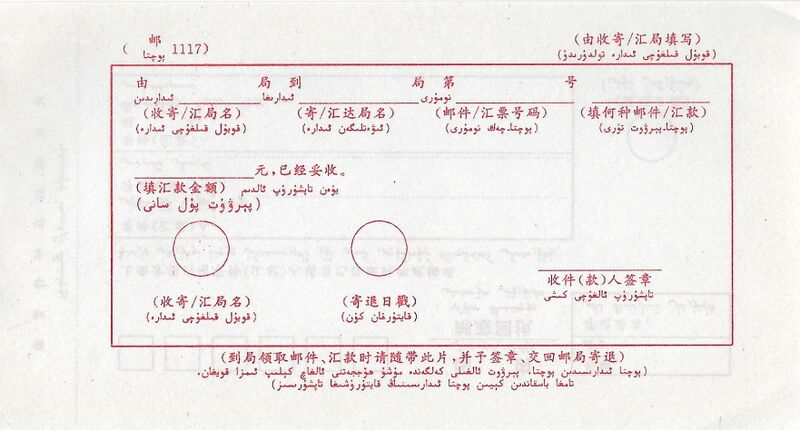 (邮 پوچتا 1117)
(由收寄/汇局填写)
(قوبۇل قىلغۇچى ئىدارە تولدۇرىدۇ)
由 局到 局第 号
ئىدارىدىن ئىدارىغا نومۇرى
(收寄/汇局名) (寄/汇达局名) (邮件/汇票号码) (填何种邮件/汇款)
(قوبۇل قىلغۇچى ئىدارە) (ئىۋەتىلگەن ئىدارە) (پوچتا-چەك نومۇرى) (پوچتا-پىرۋوت تۈرى)
元,已经妥收。
(填汇款金额) يۈەن تاپشۇرۇپ ئالدىم
(پېرۋۇت پۇل سانى)
(收寄/汇局名) (寄退日戳) 收件(款)人签章
(قوبۇل قىلغۇچى ئىدارە) (قايتۇرغان كۈن) تاپشۇرۇپ ئالغۇچى كىشى
(到局领取邮件、汇款时请随带此片,并予签章、交回邮局寄退)
(پوچتا ئىدارىسىدىن پوچتا، پېرۋوت ئالغىلى كەلگەندە مۇشۇ ھۆججەتنى ئالغاچ كېلىپ ئىمزا قويغان،
تامغا باسقاندىن كېيىن پوچتا ئىدارىسىنىڭ قايتۇرۇشىغا تاپشۇرسىز)